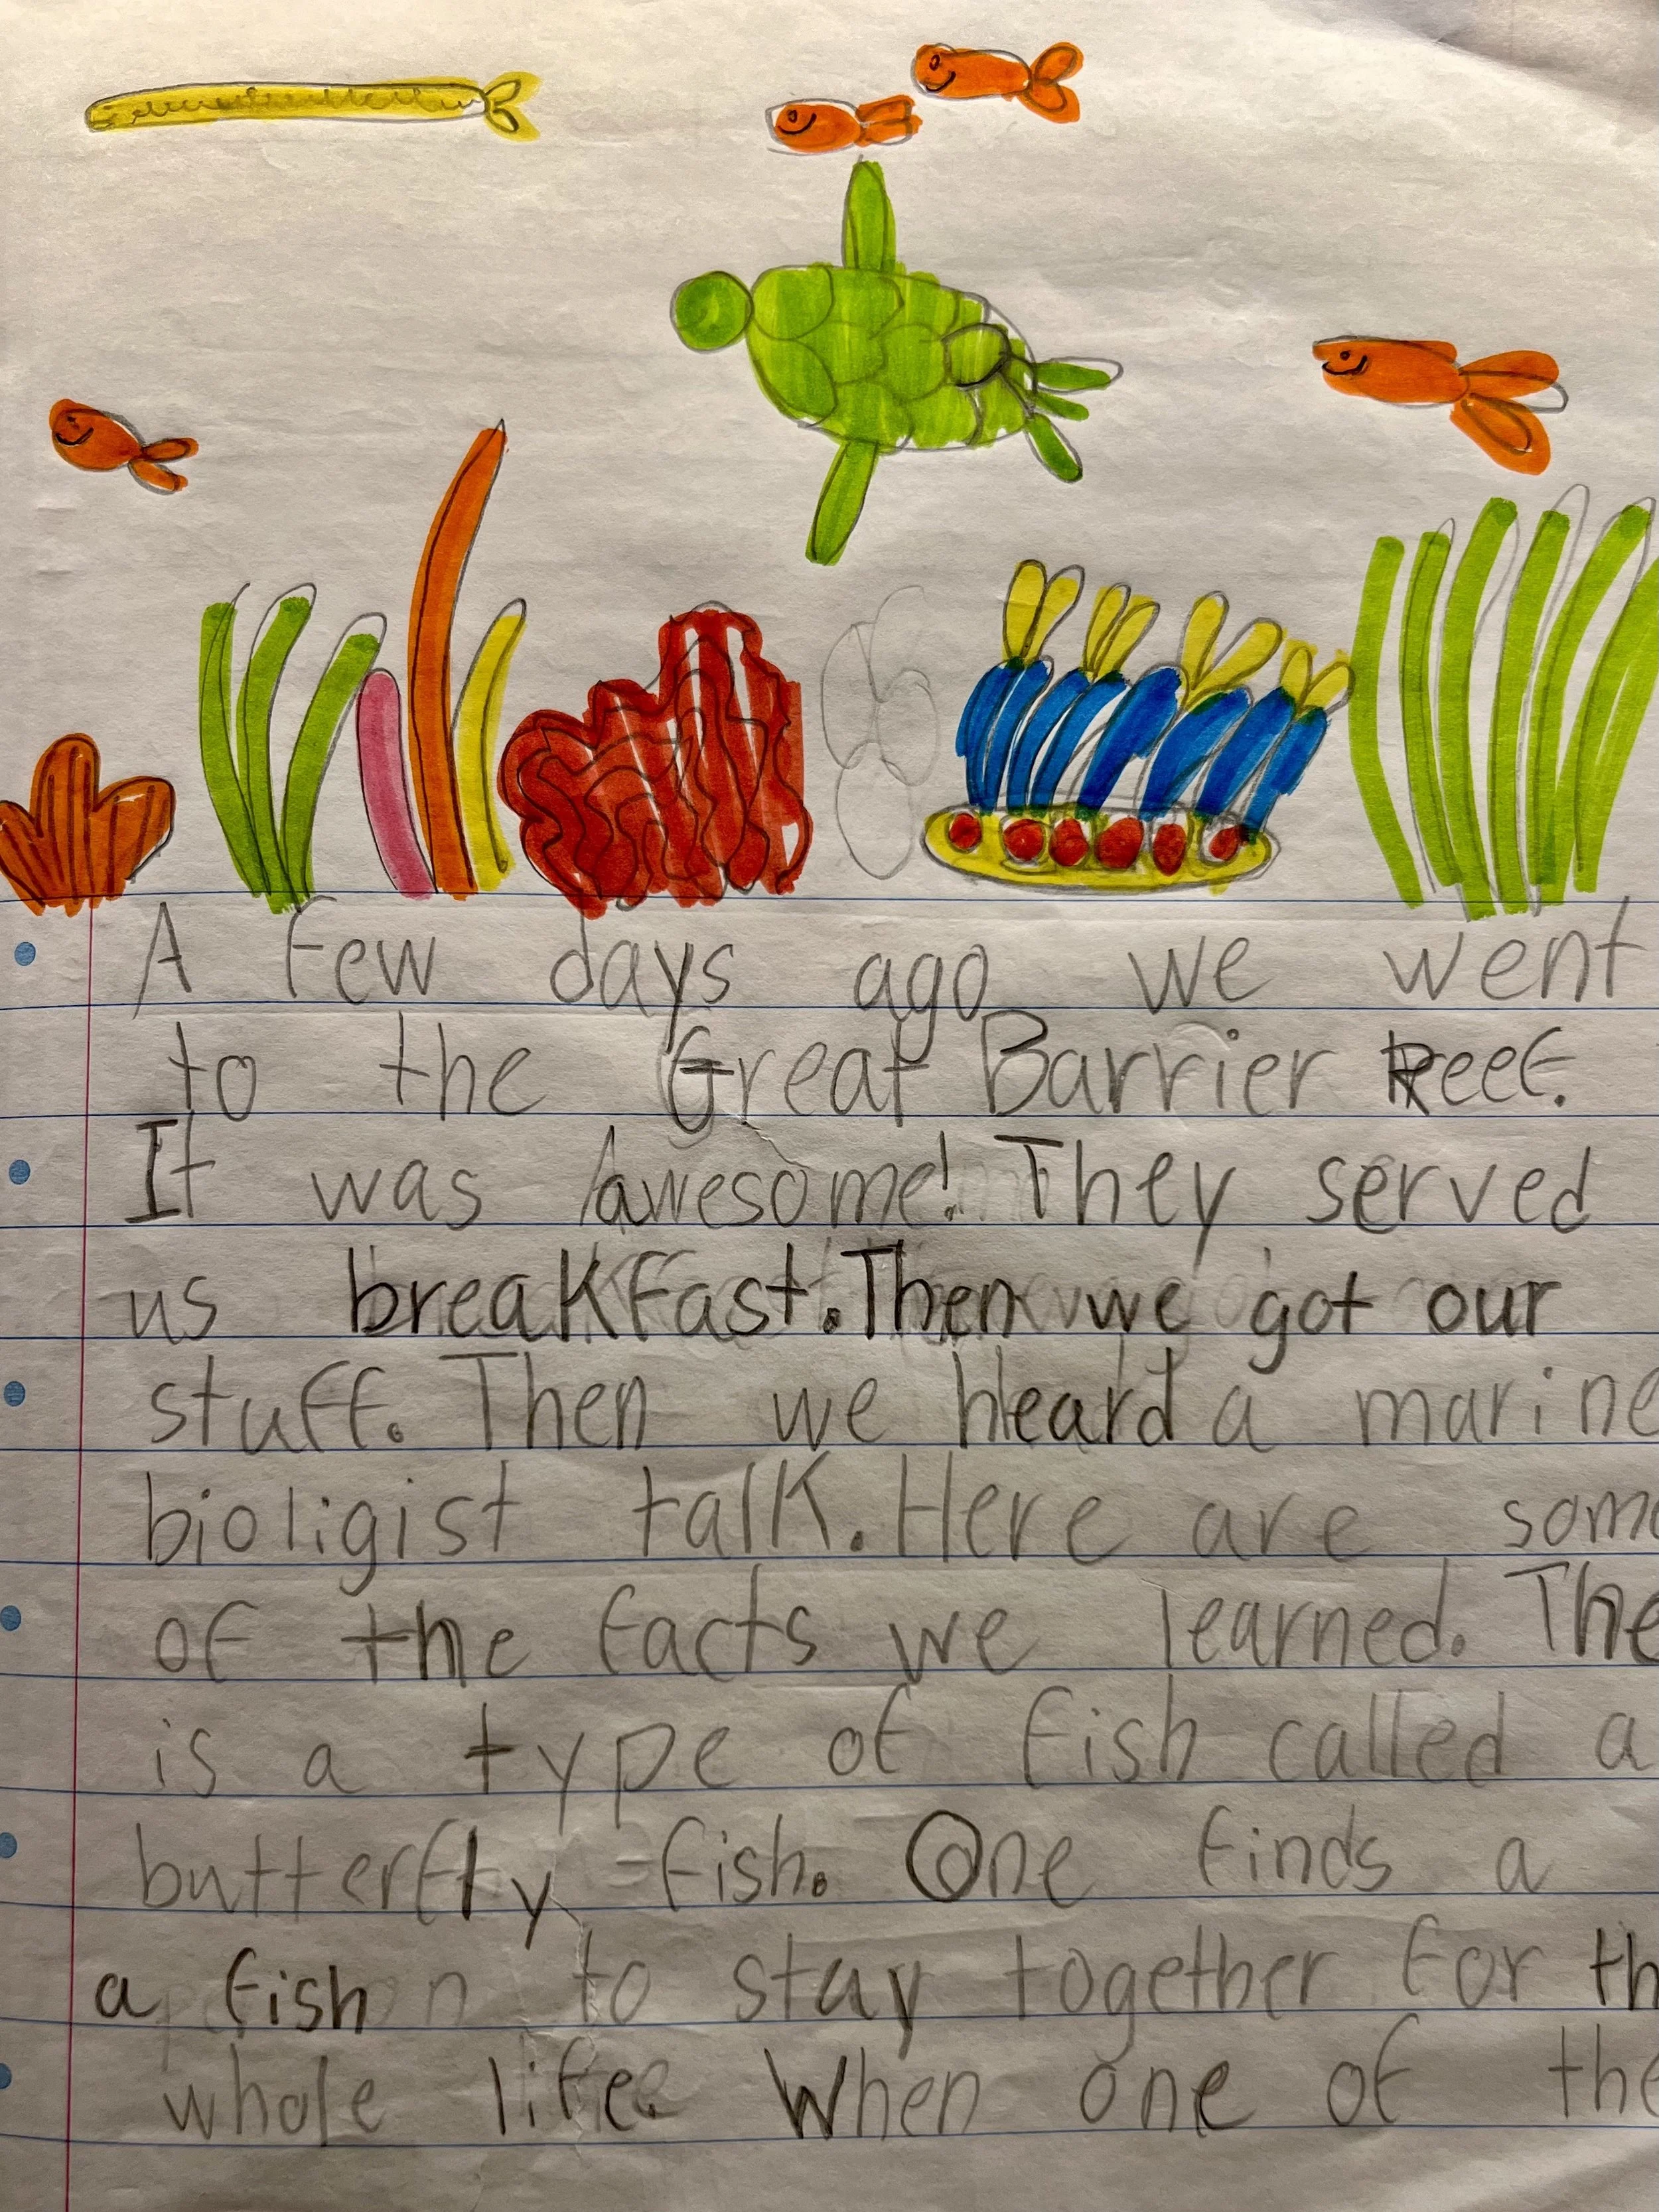 A few days ago we went
to the Great Barrier Reef.
It was Awesome! They served
us breakfast. Then we got our
stuff. Then we heard a marine
bioligist talk. Here are some
of the facts we learned. The
is a type of fish called a
butterfly-fish. One finds a
a fish to stay together for th
whole life. When one of the